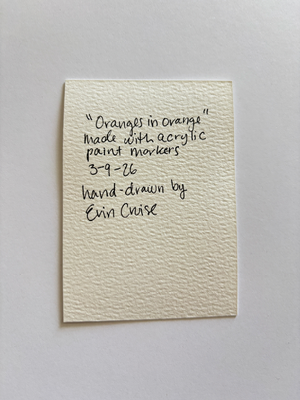 "Oranges in orange"
made with acrylic
paint markers
3-9-26
hand-drawn by
Erin Cruise